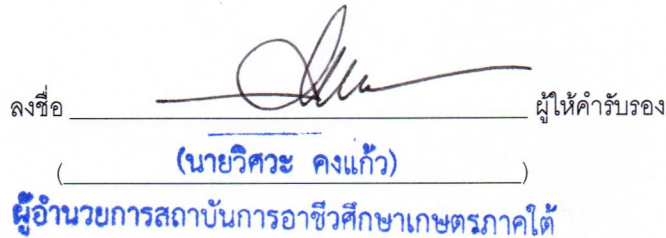 ลงชื่อ ผู้ให้คำรับรอง
(นายวิศวะ คงแก้ว)
ผู้อำนวยการสถาบันการอาชีวศึกษาเกษตรภาคใต้